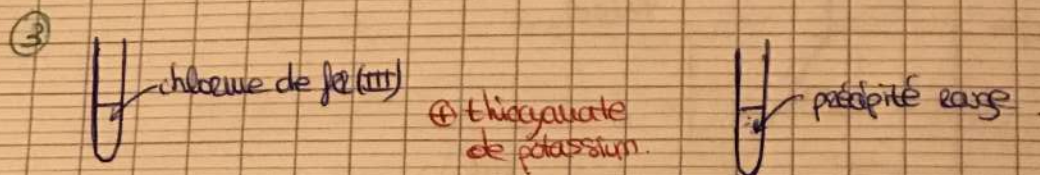 3
chlorure de fe (III)
⊕ thiocyanate
de potassium.
précipité rouge.